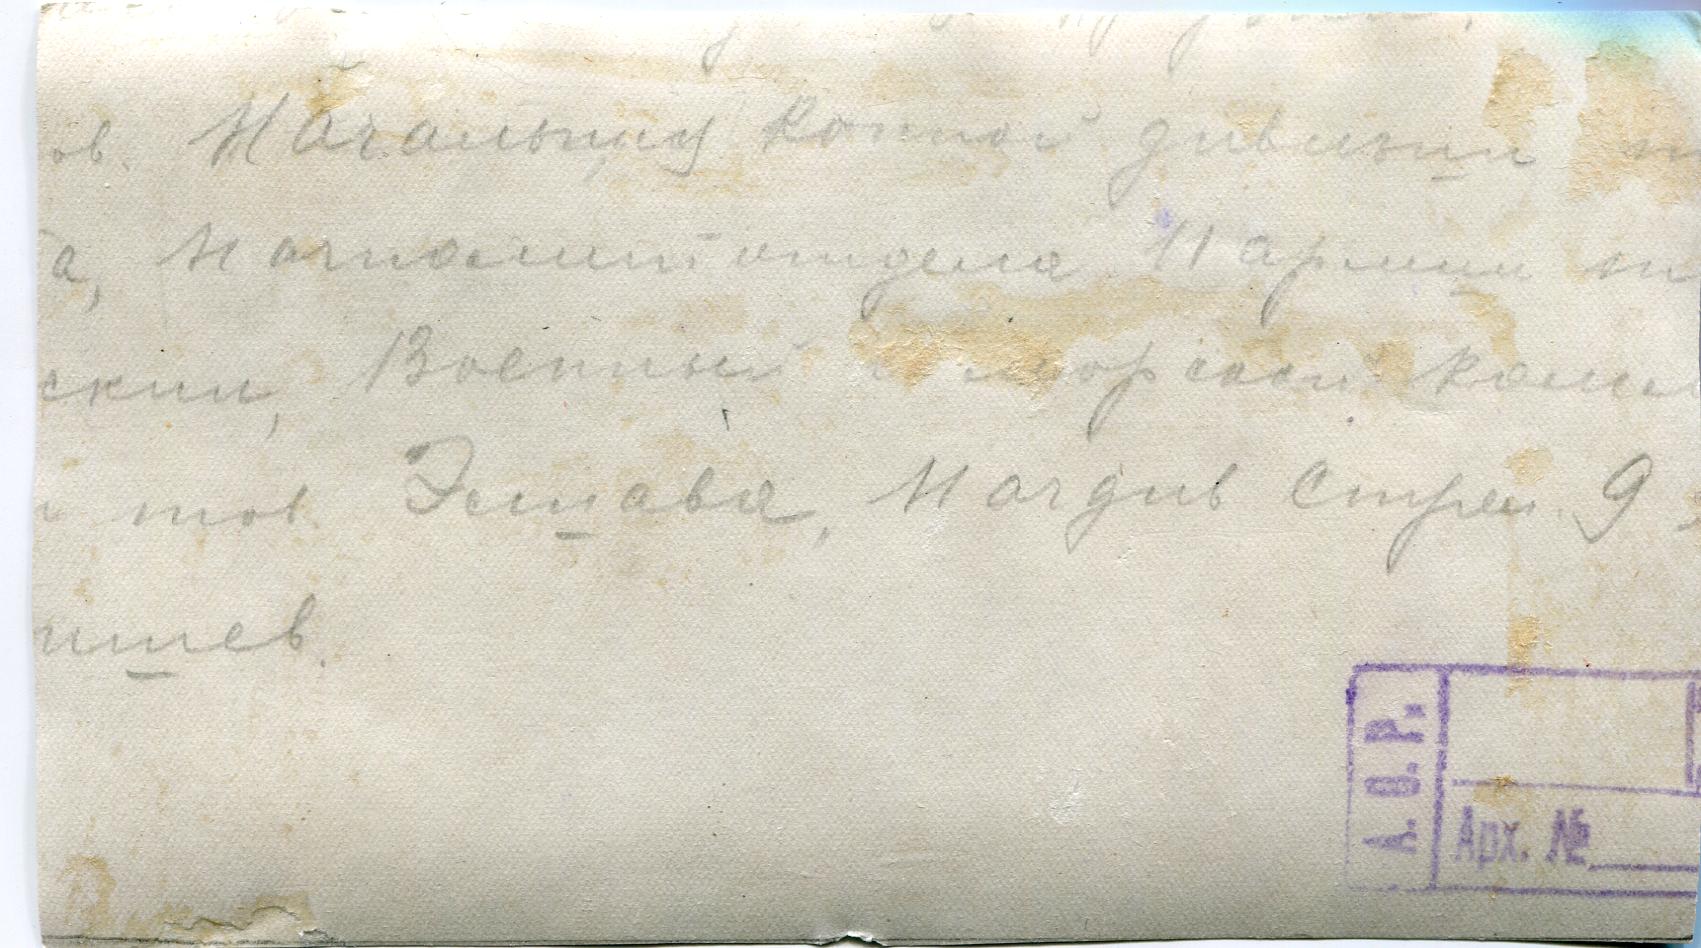 ов. Начальник Конной дивизии т
а, Начполитотдела 11 Армии т
ский, Военный и морской коми
тов Элиава, Начдив Стрел. 9
ишев.
А. О. Р.
Арх. №